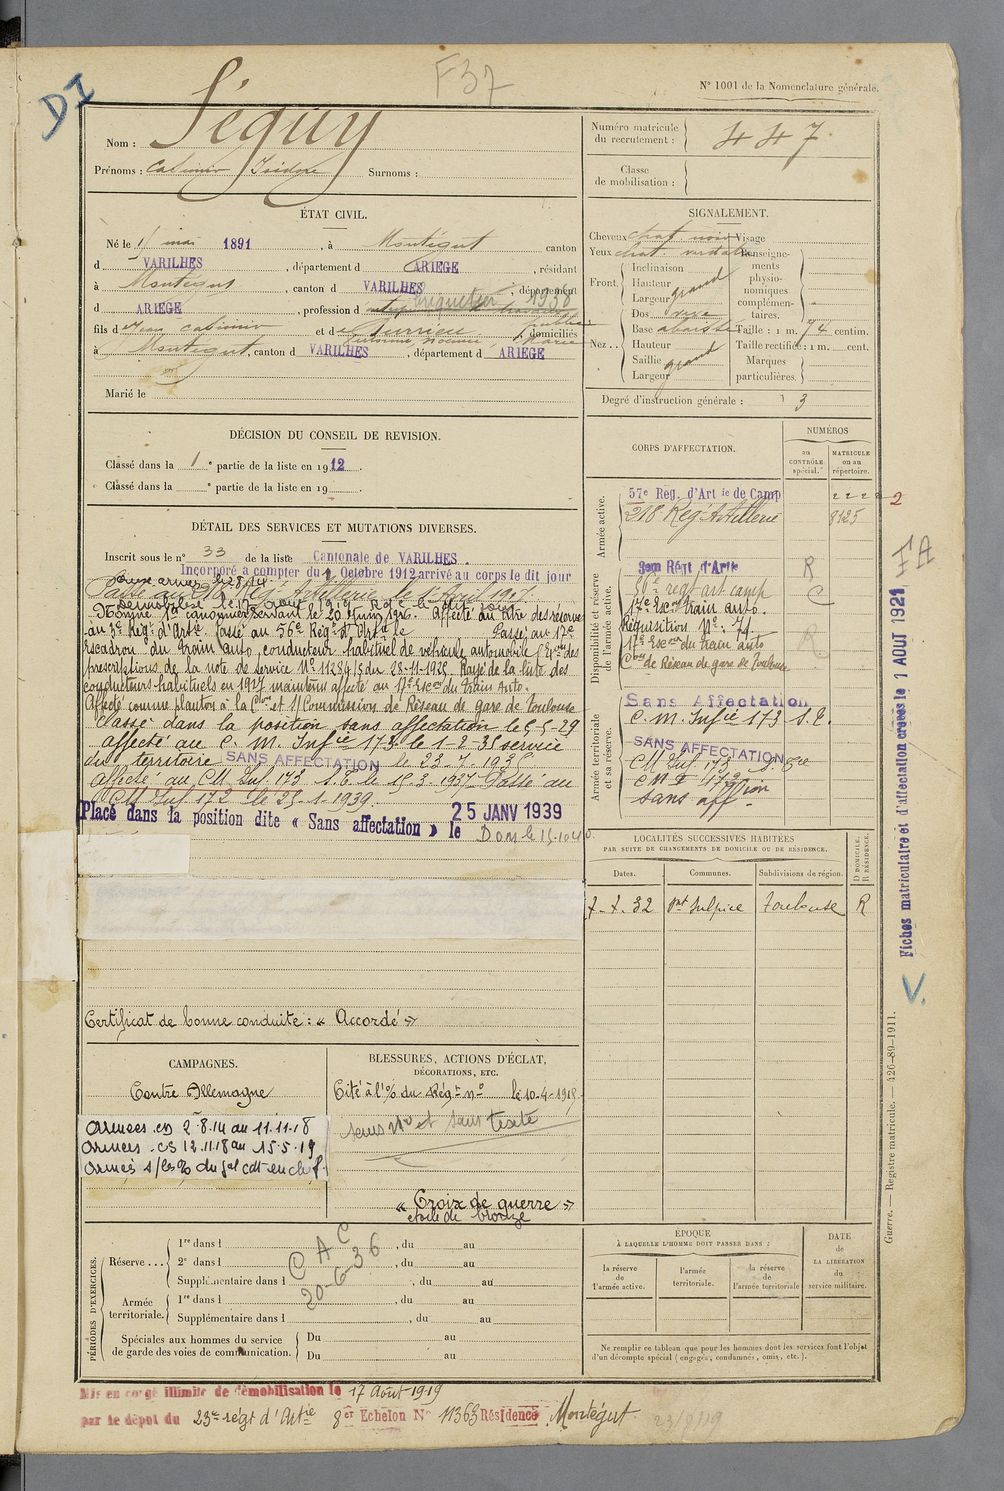 DI
F37
N° 1001 de la Nomenclature générale.
Nom : Séguy
Prénoms : Casimir Isidore Surnoms :
Numéro matricule du recrutement : 447
Classe de mobilisation :
ÉTAT CIVIL.
Né le 11 mai 1891, à Montégut canton
d VARILHES, département d ARIEGE, résidant
à Montégut, canton d VARILHES, département
d ARIEGE, profession d briquetier 1938
fils d Jean Casimir et d Surrieu, domiciliés
à Montégut, canton d VARILHES, département d ARIEGE
Marié le
SIGNALEMENT.
Cheveux chat noir Visage
Yeux chat. Renseignements physionomiques complémentaires.
Front. Inclinaison
Hauteur
Largeur grand
Nez .. Dos
Base abaissé Taille : 1 m. 74 centim.
Hauteur Taille rectifiée : 1 m. cent.
Saillie grand Marques
Largeur particulières.
Degré d'instruction générale : 3
DÉCISION DU CONSEIL DE REVISION.
Classé dans la 1e partie de la liste en 1912.
Classé dans la e partie de la liste en 19 .
DÉTAIL DES SERVICES ET MUTATIONS DIVERSES.
Inscrit sous le n° 33 de la liste Cantonale de VARILHES.
Incorporé à compter du 1 Octobre 1912 arrivé au corps le dit jour
Passé au 218 Rég. Artillerie le 1 Avril 1917.
Nommé 1er canonnier servant le 20 Juin 1916. Affecté au titre des réserves
au 3e Rég. d'Art. Passé au 56e Rég. d'Art. le Passé au 17e
Escadron du train auto, conducteur habituel de véhicule automobile
prescriptions de la note de service N° 11284/5 du 28-11-1925. Rayé de la liste des
conducteurs habituels en 1927 maintenu affecté au 17e Esc. du train Auto.
Affecté comme planton à la Con et S/Commission de Réseau de gare de Toulouse
Classé dans la position sans affectation le 5-5-29
affecté au C. M. Infie 173 le 1-2-35 service
du territoire SANS AFFECTATION le 23-7-1935
affecté au CM Inf. 173 S.E. le 15-3-1937 Passé au
CM Inf. 172 le 25-1-1939.
Placé dans la position dite « Sans affectation » le 25 JANV 1939
Dom le 15-10-40
Certificat de bonne conduite : « Accordé »
CORPS D'AFFECTATION.
NUMÉROS
au CONTRÔLE spécial.
MATRICULE ou au répertoire.
Armée active.
57e Rég. d'Artie de Camp 2222
218 Rég. Artillerie 8125
Disponibilité et réserve de l'armée active.
3em Régt d'Artie R
56e régt art camp C
17e Esc. train auto.
Réquisition N° 71.
17e Escon du train auto R
Con de Réseau de gare de Toulouse
Armée territoriale et sa réserve.
Sans Affectation
C. M. Infie 173 S.E.
SANS AFFECTATION
CM Inf. 173
C M I 172
Sans affion
LOCALITÉS SUCCESSIVES HABITÉES
PAR SUITE DE CHANGEMENTS DE DOMICILE OU DE RÉSIDENCE.
Dates. Communes. Subdivisions de région. D DOMICILE. R RÉSIDENCE.
7-7-32 St Sulpice Toulouse R
Fiches matriculaire et d'affectation creees le 1 AOUT 1921
FA
V.
Guerre. — Registre matricule. — 426-89-1911.
CAMPAGNES.
Contre Allemagne
Armées CD 2.8.14 au 11.11.18
Armées CS 12.11.18 au 15.5.19
BLESSURES, ACTIONS D'ÉCLAT,
DÉCORATIONS, ETC.
Cité à l'% du Régt n° le 10-4-1918
sans n° et sans texte
« Croix de guerre »
étoile de bronze
PÉRIODES D'EXERCICES.
Réserve ... 1re dans l , du au
2e dans l , du au
Supplémentaire dans l , du au
Armée territoriale. 1re dans l , du au
Supplémentaire dans l , du au
Spéciales aux hommes du service de garde des voies de communication. Du au
Du au
CAC
20-6-36
ÉPOQUE
À LAQUELLE L'HOMME DOIT PASSER DANS :
la réserve de l'armée active.
l'armée territoriale.
la réserve de l'armée territoriale
DATE de LA LIBÉRATION du service militaire.
Ne remplir ce tableau que pour les hommes dont les services font l'objet
d'un décompte spécial (engagés, condamnés, omis, etc.).
Mis en congé illimité de démobilisation le 17 Août 1919
par le dépôt du 23e régt d'Artie 8er Echelon N° 11363 Résidence Montégut